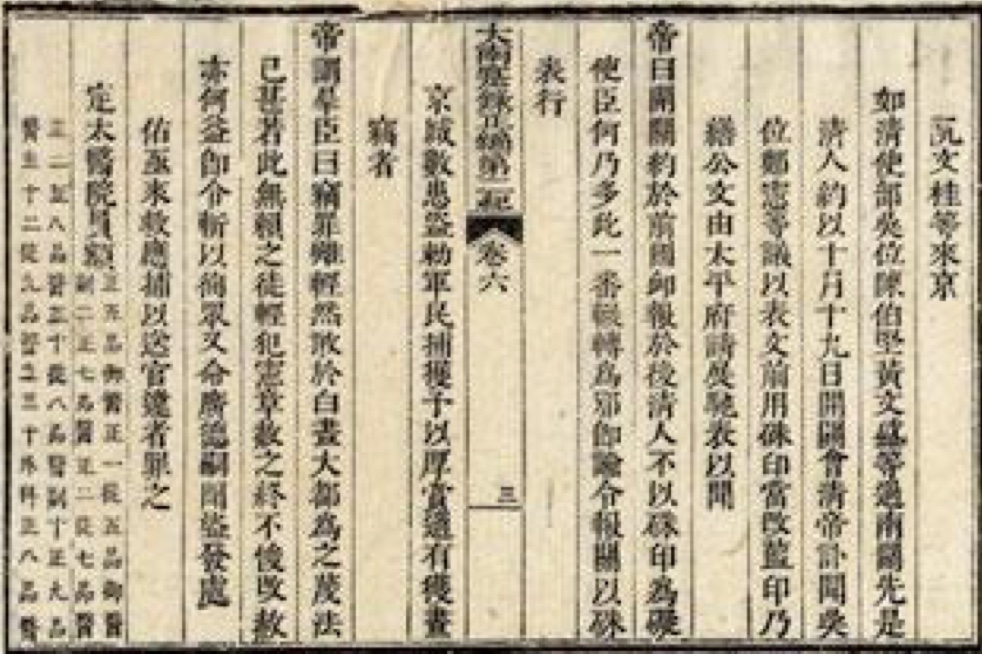 阮文桂等來京
如清使部吳位陳伯堅黃文盛等過南關先是
清人約以十月十九日開關會清帝訃聞吳
位鄭憲等議以表文前用硃印當改藍印乃
繕公文由太平府請展馳表以聞
帝曰開關約於前國卹報於後清人不以硃印為礙
使臣何乃多此一番輾轉為邪即諭令報關以硃
表行
大南寔錄正編第二紀 卷六 三
京城數患盜勅軍民捕獲予以厚賞適有獲晝
竊者
帝謂羣臣曰竊罪雖輕然敢於白晝大都為之蔑法
已甚若此無賴之徒輕犯憲章赦之終不悛改赦
亦何益即令斬以徇眾又令廣德嗣聞盜發處
佑亟來救應捕以送官違者罪之
定太醫院員額正五品御醫正一從五品御醫
副二正七品醫正二從七品醫
正二正八品醫正十從八品醫副十正九品
醫生十二從九品醫生三十外科正八品醫